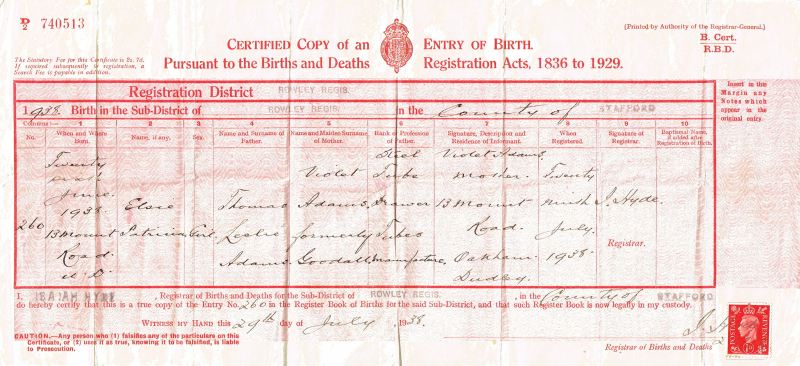 D/2 740513
(Printed by Authority of the Registrar-General.)
B. Cert.
R.B.D.
CERTIFIED COPY of an ENTRY OF BIRTH.
Pursuant to the Births and Deaths Registration Acts, 1836 to 1929.
The Statutory Fee for this Certificate is 2s. 7d.
If required subsequently to registration, a
Search Fee is payable in addition.
Insert in this
Margin any
Notes which
appear in the
original entry.
Registration District ROWLEY REGIS.
1938. Birth in the Sub-District of ROWLEY REGIS. in the County of STAFFORD
Columns:— 1 2 3 4 5 6 7 8 9 10
No. When and Where Born. Name, if any. Sex. Name and Surname of Father. Name and Maiden Surname of Mother. Rank or Profession of Father. Signature, Description and Residence of Informant. When Registered. Signature of Registrar. Baptismal Name, if added after Registration of Birth.
260
Twenty
sixth
June
1938
13 Mount
Road
U.D.
Elsie
Patricia
Girl
Thomas
Leslie
Adams
Violet
Adams
formerly
Goodall
Steel
Tube
Drawer
Tubes
Manufacture
Violet Adams
Mother
13 Mount
Road
Oakham
Dudley
Twenty
ninth
July
1938
I. Hyde
Registrar.
I, ISAIAH HYDE, Registrar of Births and Deaths for the Sub-District of ROWLEY REGIS, in the County of STAFFORD
do hereby certify that this is a true copy of the Entry No. 260 in the Register Book of Births for the said Sub-District, and that such Register Book is now legally in my custody.
WITNESS MY HAND this 29th day of July, 1938.
CAUTION.—Any person who (1) falsifies any of the particulars on this
Certificate, or (2) uses it as true, knowing it to be falsified, is liable
to Prosecution.
Registrar of Births and Deaths
POSTAGE
REVENUE